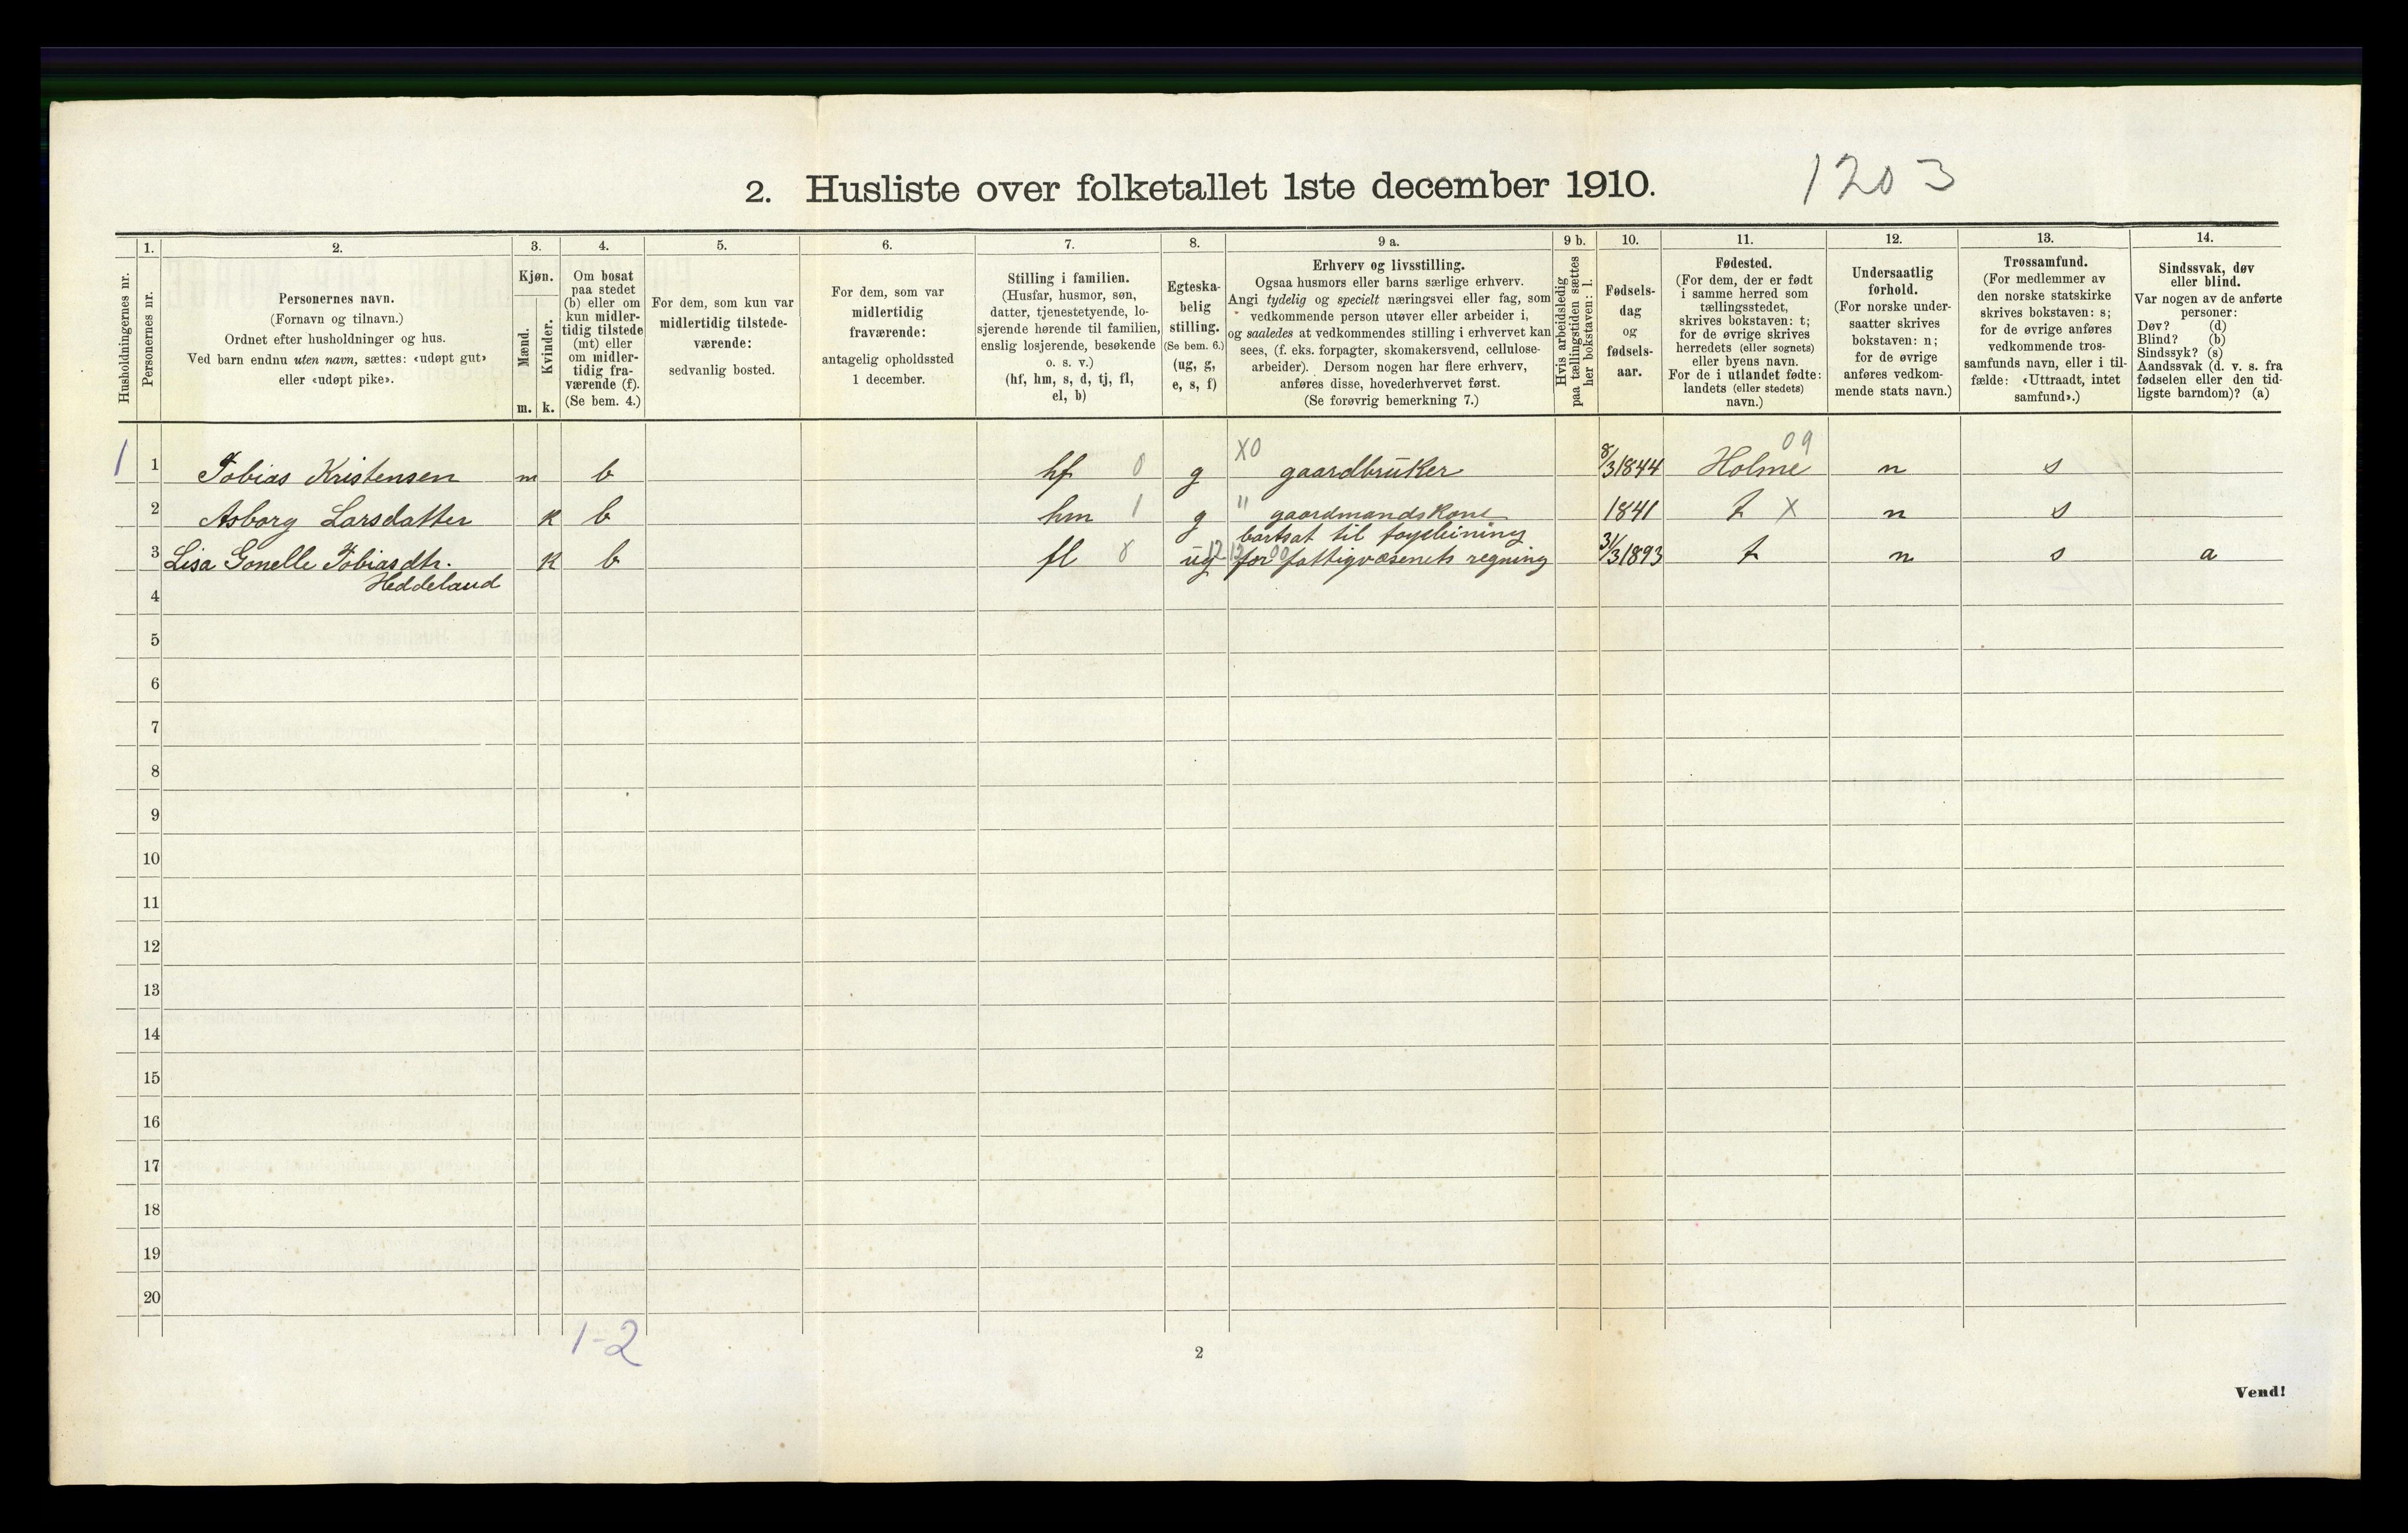 2. Husliste over folketallet 1ste december 1910.
1203
Husholdningernes nr.
1.
Personernes nr.
2.
Personernes navn.
(Fornavn og tilnavn.)
Ordnet efter husholdninger og hus.
Ved barn endnu uten navn, sættes: «udøpt gut»
eller «udøpt pike».
3.
Kjøn.
Mænd.
Kvinder.
m. k.
4.
Om bosat
paa stedet
(b) eller om
kun midler-
tidig tilstede
(mt) eller
om midler-
tidig fra-
værende (f).
(Se bem. 4.)
5.
For dem, som kun var
midlertidig tilstede-
værende:
sedvanlig bosted.
6.
For dem, som var
midlertidig
fraværende:
antagelig opholdssted
1 december.
7.
Stilling i familien.
(Husfar, husmor, søn,
datter, tjenestetyende, lo-
sjerende hørende til familien,
enslig losjerende, besøkende
o. s. v.)
(hf, hm, s, d, tj, fl,
el, b)
8.
Egteska-
belig
stilling.
(Se bem. 6.)
(ug, g,
e, s, f)
9 a.
Erhverv og livsstilling.
Ogsaa husmors eller barns særlige erhverv.
Angi tydelig og specielt næringsvei eller fag, som
vedkommende person utøver eller arbeider i,
og saaledes at vedkommendes stilling i erhvervet kan
sees, (f. eks. forpagter, skomakersvend, cellulose-
arbeider). Dersom nogen har flere erhverv,
anføres disse, hovederhvervet først.
(Se forøvrig bemerkning 7.)
9 b.
Hvis arbeidsledig
paa tællingstiden sættes
her bokstaven: l.
10.
Fødsels-
dag
og
fødsels-
aar.
11.
Fødested.
(For dem, der er født
i samme herred som
tællingsstedet,
skrives bokstaven: t;
for de øvrige skrives
herredets (eller sognets)
eller byens navn.
For de i utlandet fødte:
landets (eller stedets)
navn.)
12.
Undersaatlig
forhold.
(For norske under-
saatter skrives
bokstaven: n;
for de øvrige
anføres vedkom-
mende stats navn.)
13.
Trossamfund.
(For medlemmer av
den norske statskirke
skrives bokstaven: s;
for de øvrige anføres
vedkommende tros-
samfunds navn, eller i til-
fælde: «Uttraadt, intet
samfund».)
14.
Sindssvak, døv
eller blind.
Var nogen av de anførte
personer:
Døv? (d)
Blind? (b)
Sindssyk? (s)
Aandssvak (d. v. s. fra
fødselen eller den tid-
ligste barndom)? (a)
X0 09
1 1 Tobias Kristensen m b hf 0 g gaardbruker 8/3 1844 Holme n s
2 Asborg Larsdatter k b hm 1 g " gaardmandskone 1841 t X n s
bortsat til
3 Lisa Gonelle Tobiasdtr. k b fl ug for fattigvæsenets regning 31/3 1893 t n s a
Heddeland
4
5
6
7
8
9
10
11
12
13
14
15
16
17
18
19
20
1-2
2
Vend!